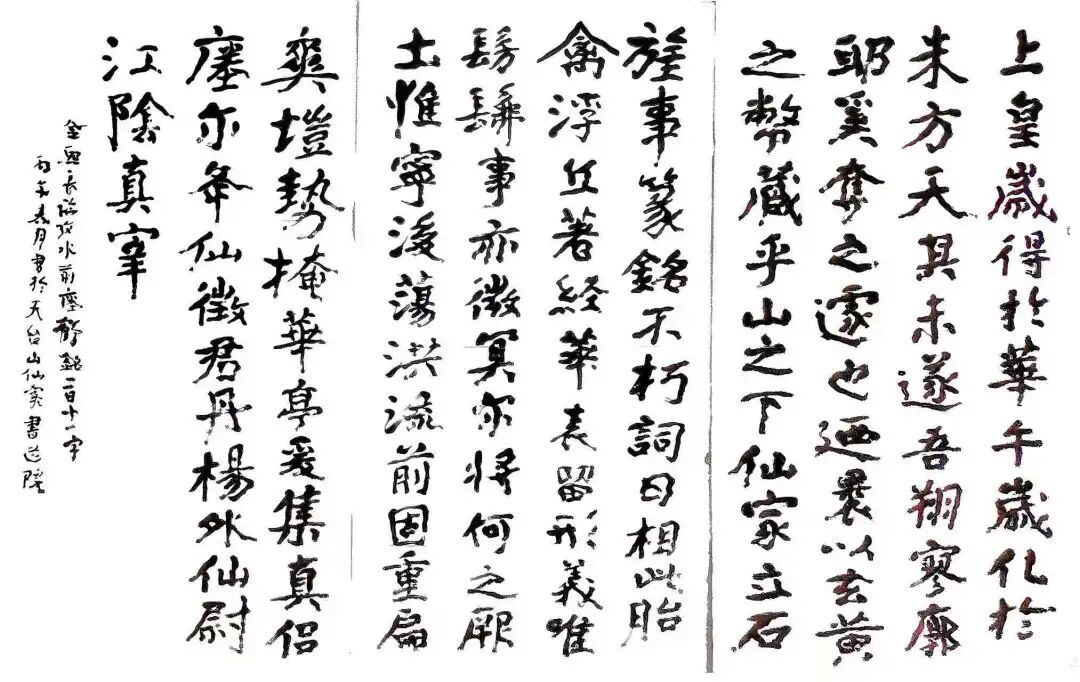 上皇歲得於華午歲化於
朱方天其未遂吾翔寥廓
耶奚奪之遽也迺裹以玄黃
之幣藏乎山之下仙家立石
旌事篆銘不朽詞曰相此胎
禽浮丘著經華表留形義唯
髣髴事亦微冥尔將何之厥
土惟寧後蕩洪流前固重扃
爽塏勢掩華亭爰集真侶
瘞尔仙徵君丹楊外仙尉
江陰真宰
水前瘞鶴銘百十一字
丙午春月書於天台山仙窟書道院